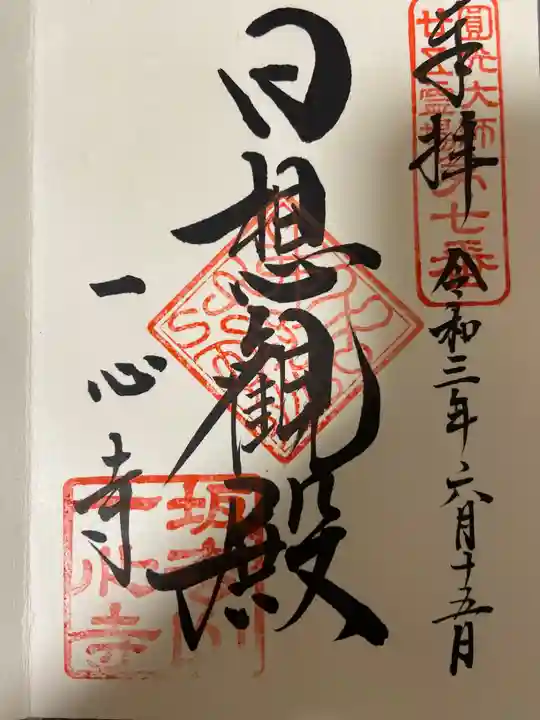 奉拝
圓光大師
廿五霊場第七番
令和三年六月十五日
日想観殿
一心寺
一心寺